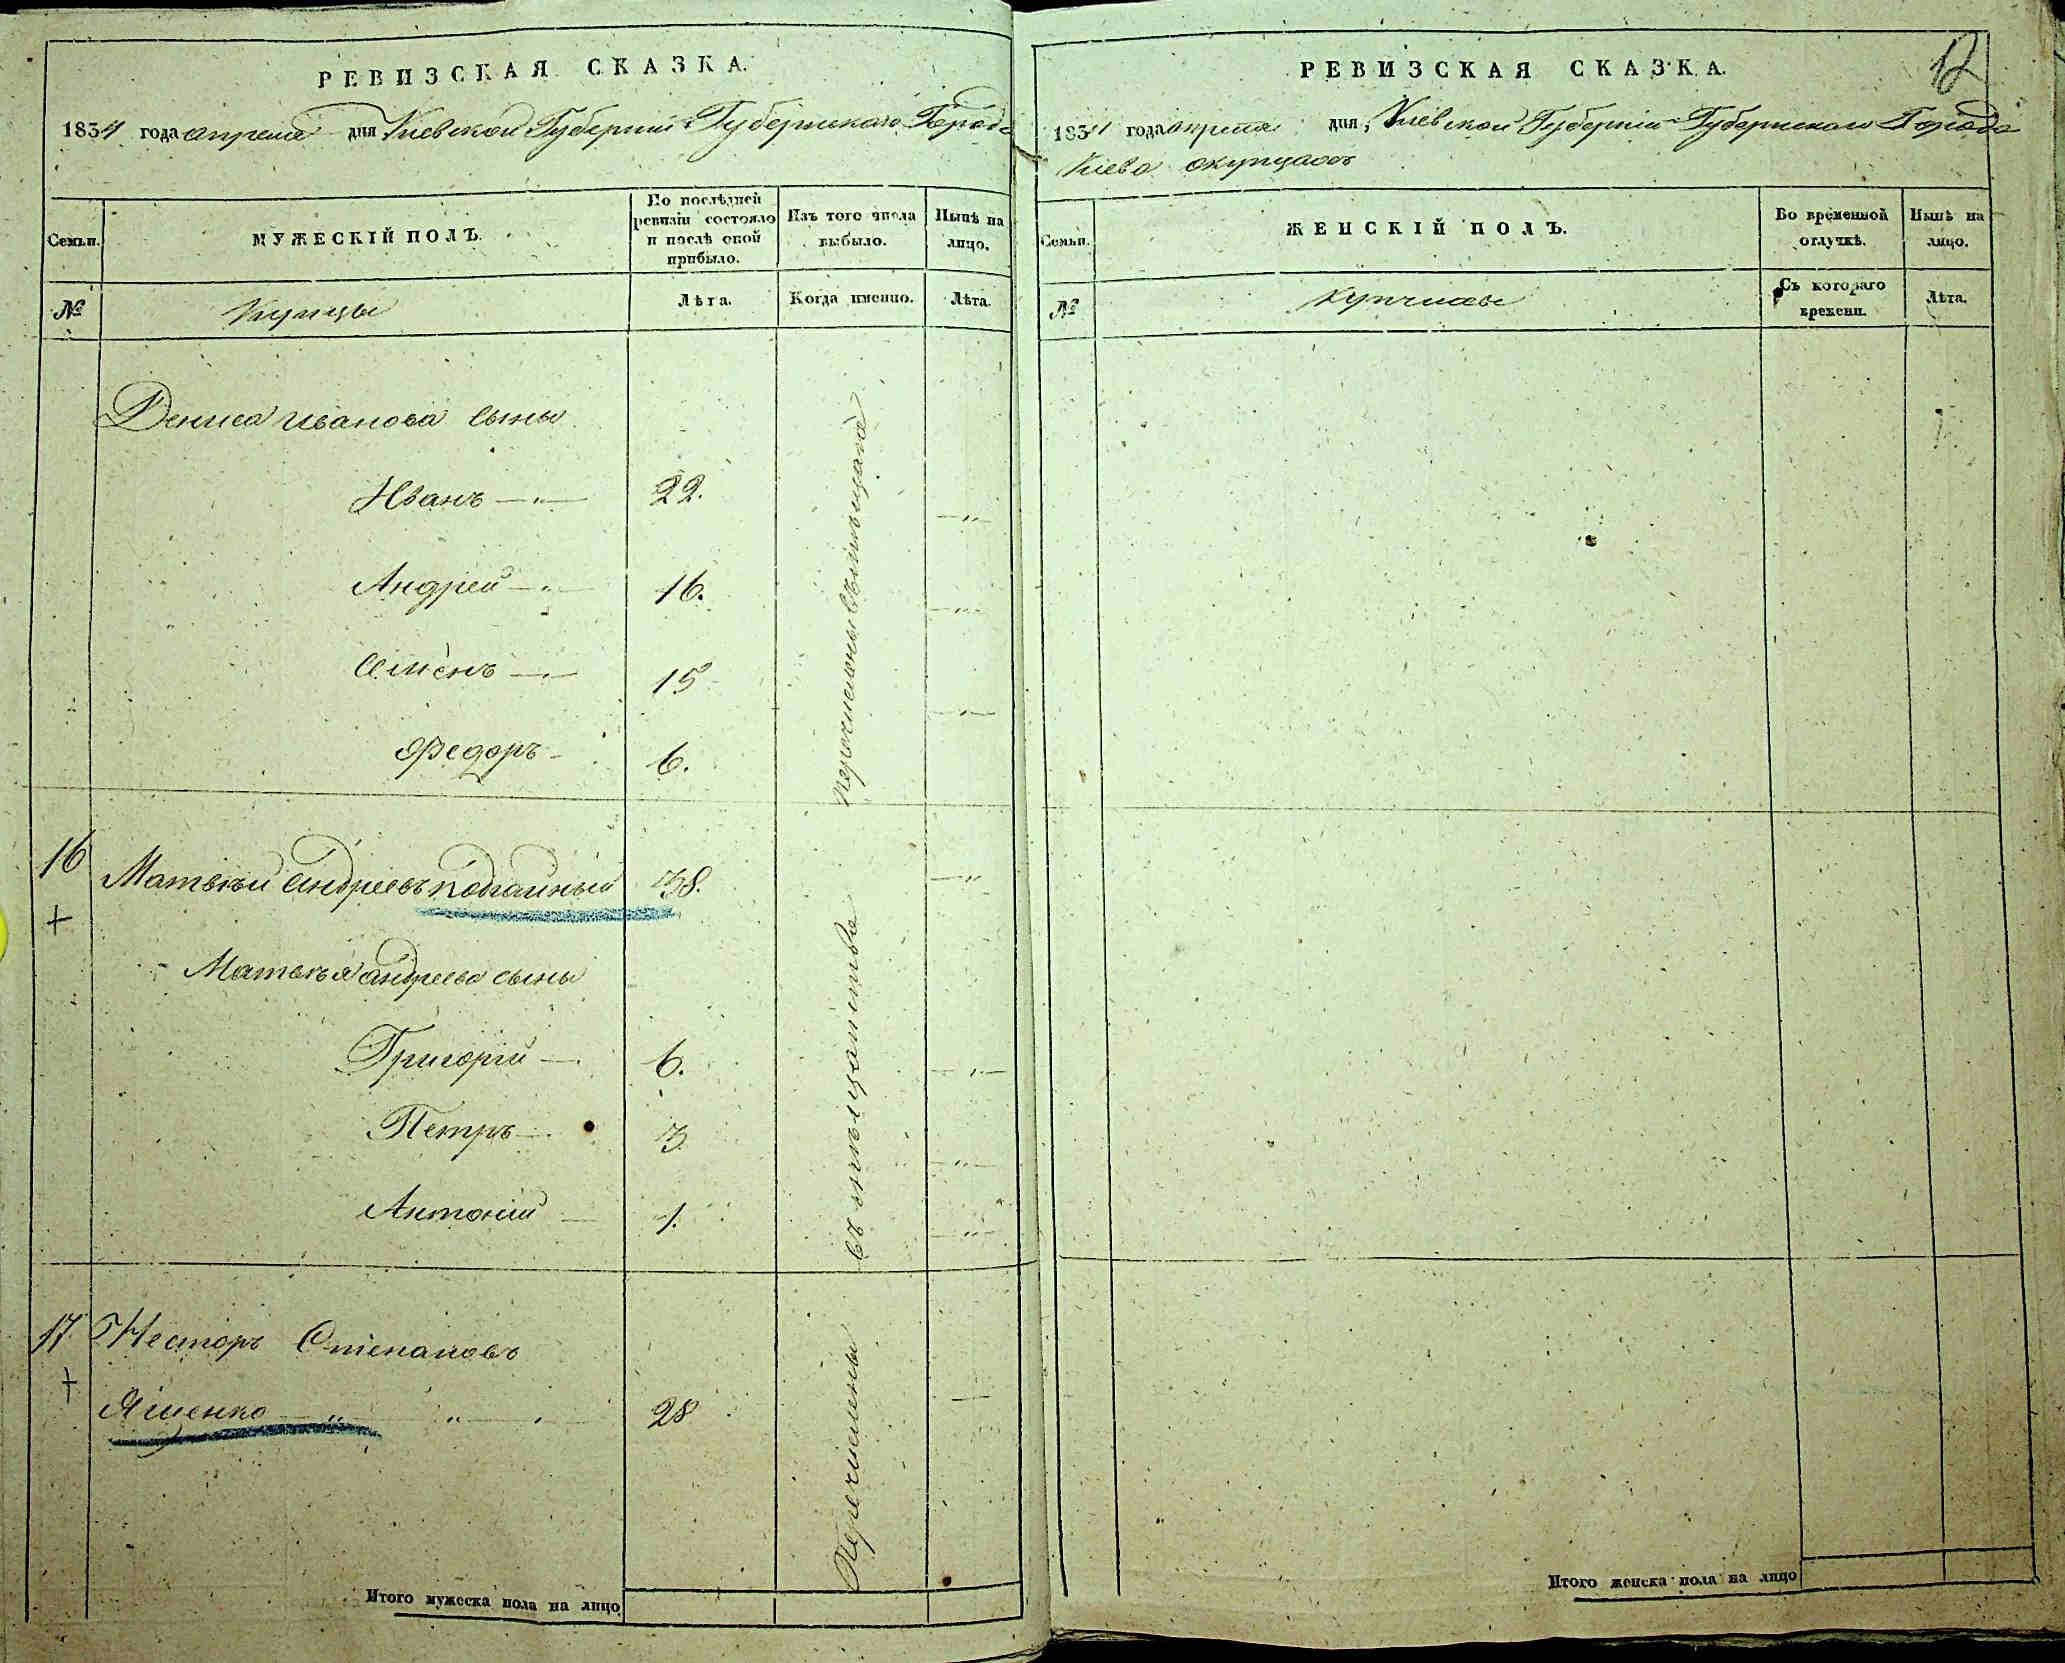 РЕВИЗСКАЯ СКАЗКА.
1834 года апреля дня Киевской Губерніи Губернскаго Города
Семьи.
МУЖЕСКІЙ ПОЛЪ.
По послѣдней ревизіи состояло и послѣ оной прибыло.
Изъ того числа выбыло.
Нынѣ на лицо.
№
Купцы
Лѣта.
Когда именно.
Лѣта.
Дениса Иванова сыны
Иванъ 22.
Андрей 16.
Семенъ 15
Федоръ 6.
Перечислены въ мѣщане
16 Матвѣй Андреевъ 38.
+
Матвѣя Андреева сыны
Григорій 6.
Петръ 3
Антоній 1.
17 Несторъ Степановъ
+ Яшенко 28
Перечислены
въ мѣщанство
Итого мужеска пола на лицо
12
РЕВИЗСКАЯ СКАЗКА.
1834 года апреля дня, Кіевской Губерніи Губернскаго Города
Кіева окупцахъ
Семьи.
ЖЕНСКІЙ ПОЛЪ.
Во временной отлучкѣ.
Нынѣ на лицо.
№
Купчихи
Съ котораго времени.
Лѣта.
Итого женска пола на лицо